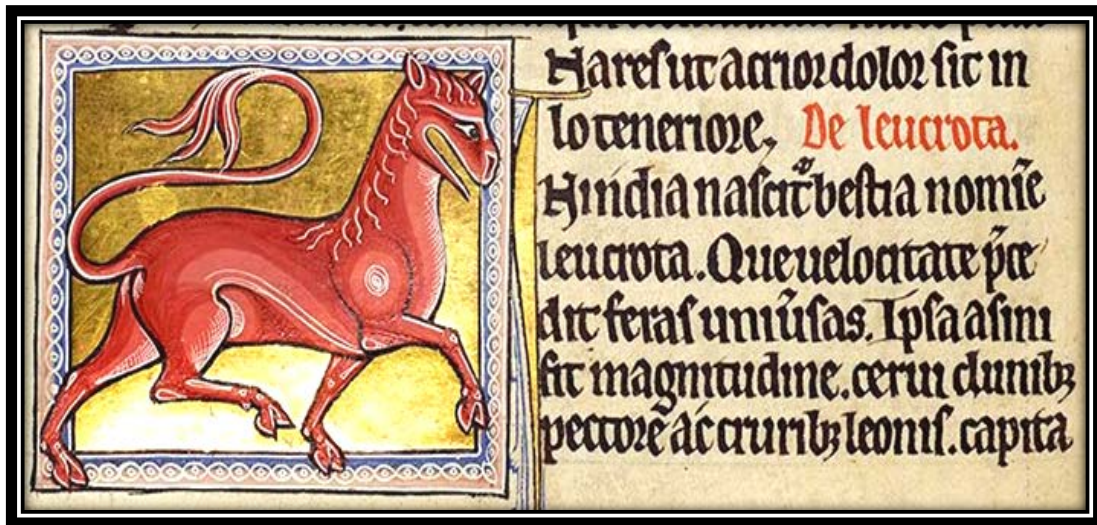 Nares ut acrior dolor sit in
lo teneriore. De leucrota.
IN india nascit᷑ bestia nomīe
leucrota. Que uelocitate p̄ce
dit feras uniūsas. Ipsa asini
fit magnitudine. cerui clunibꝫ
pectore ac cruribꝫ leonis. capita